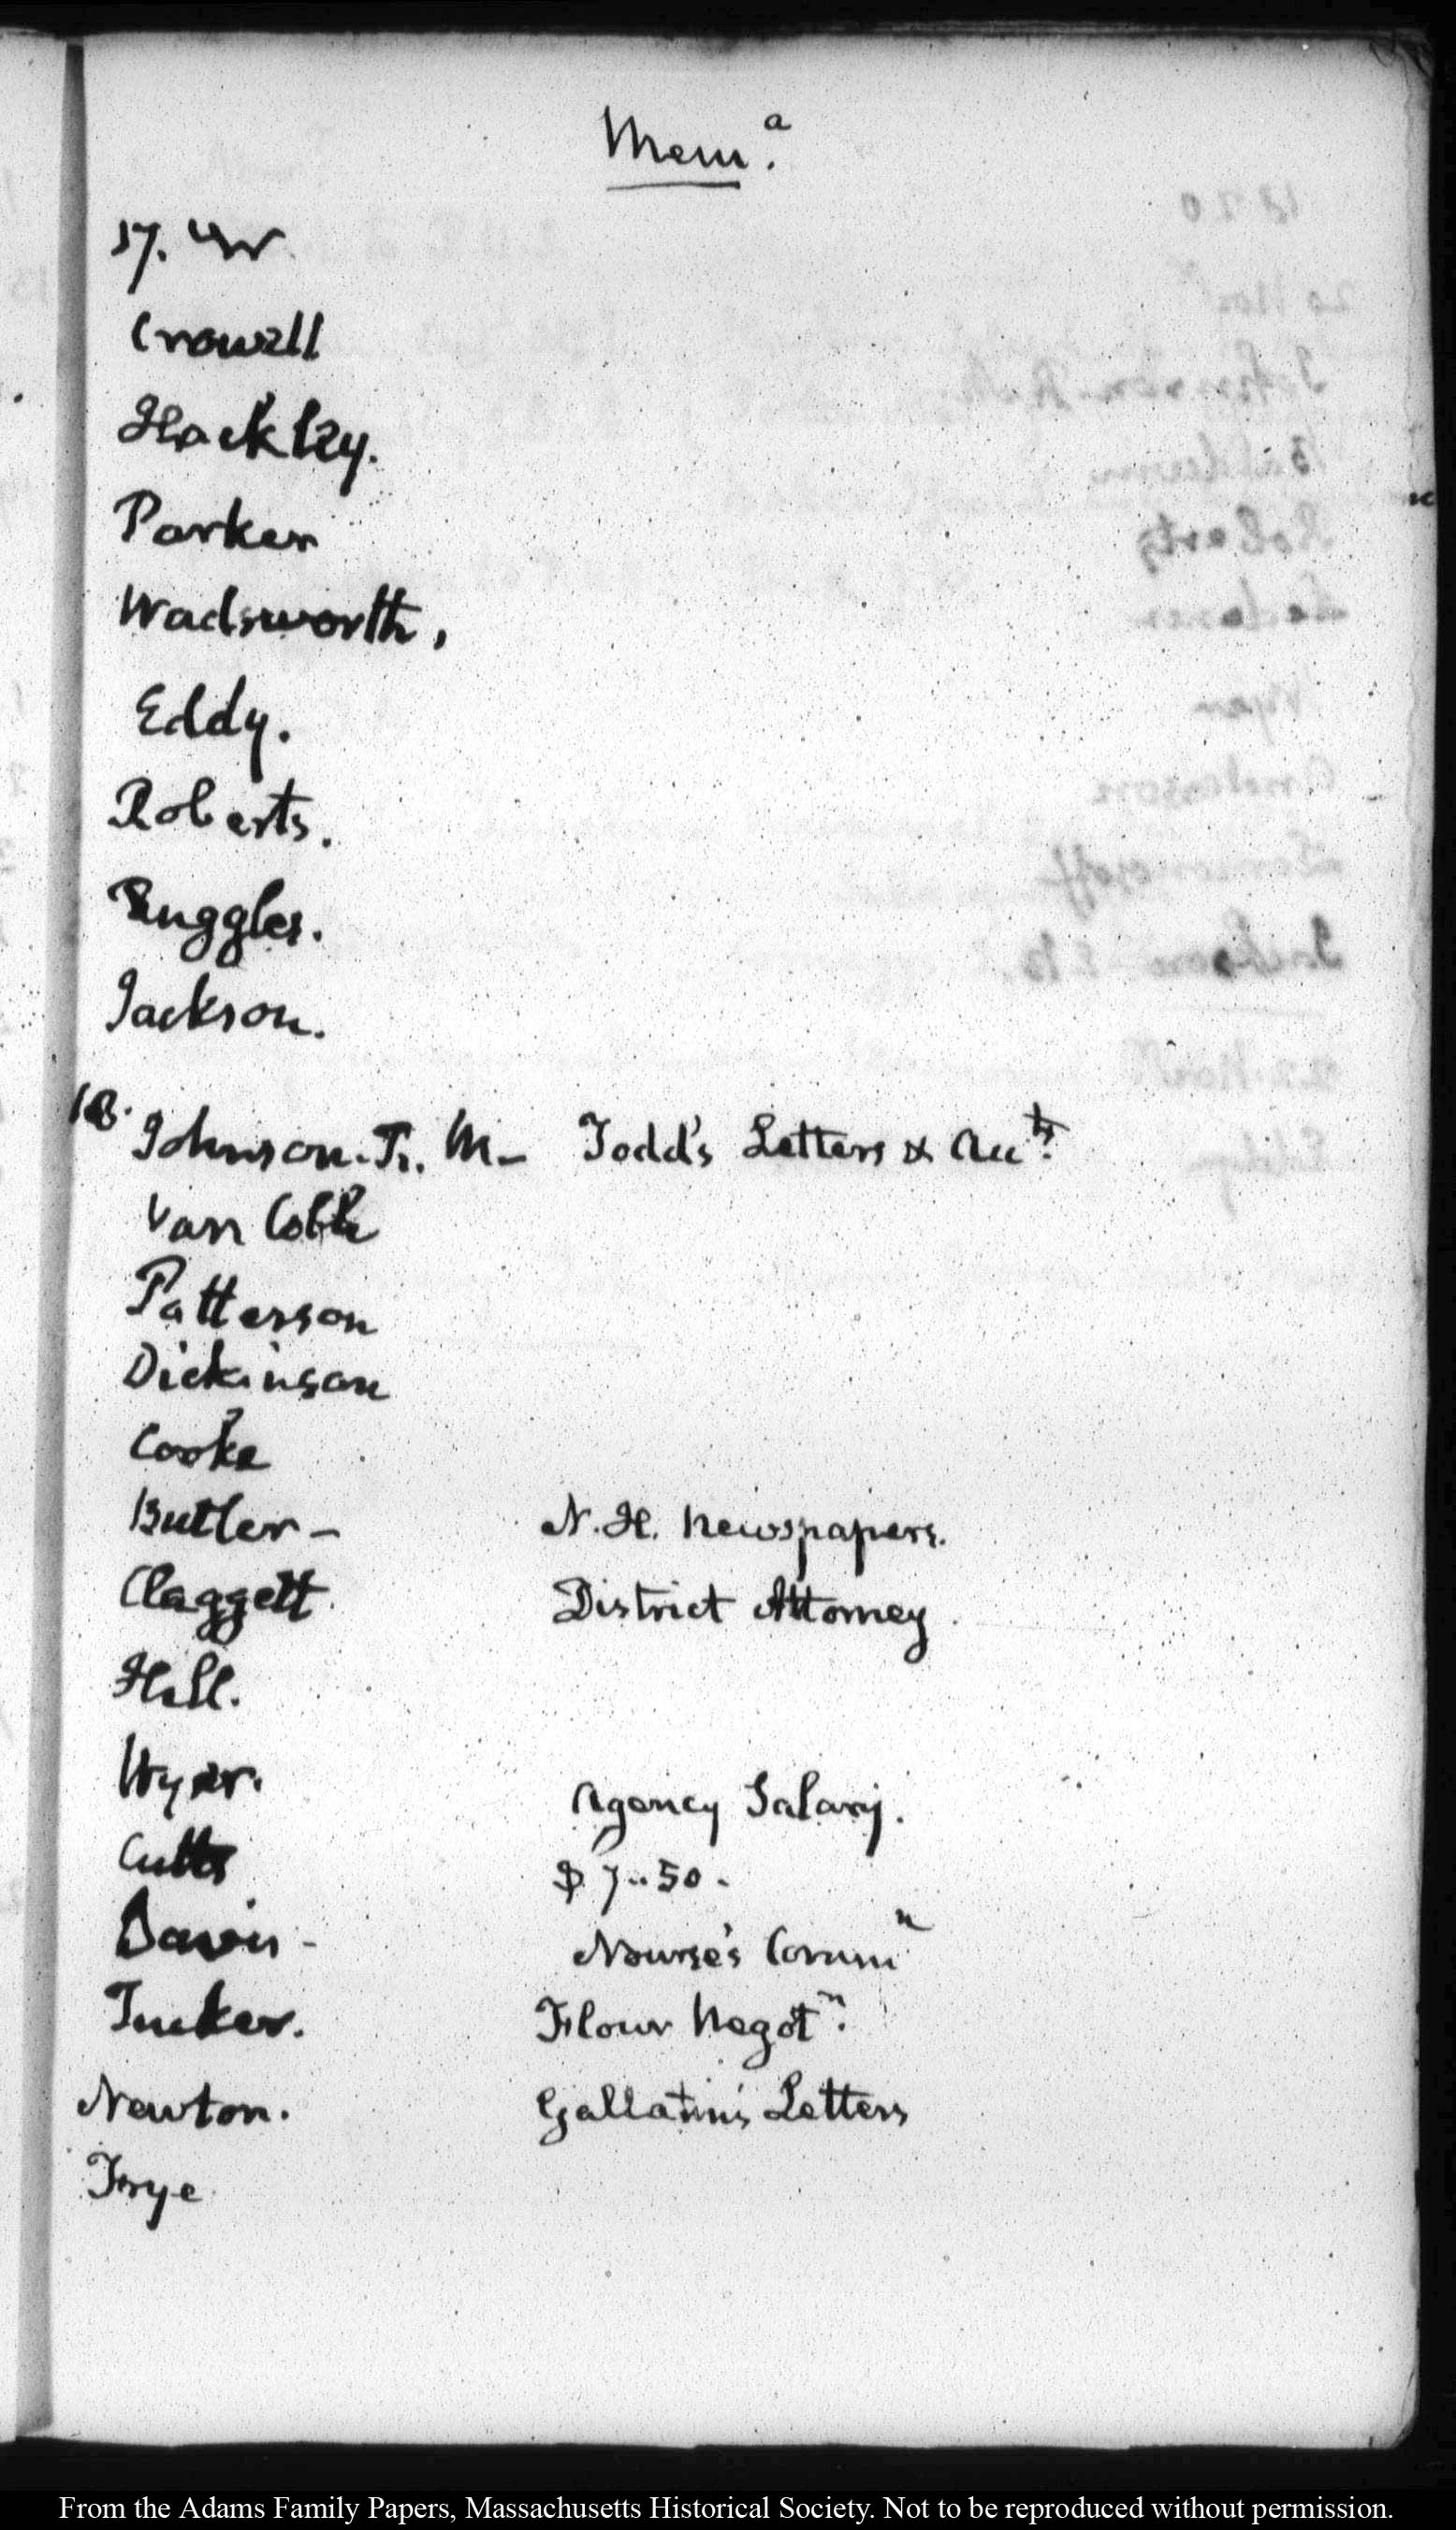 Mem.a
17.
Crowell
Hackley.
Parker
Wadsworth,
Eddy.
Roberts.
Ruggles.
Jackson.
18. Johnson. R. M - Todd's Letters & Accts.
Van
Patterson
Dickinson
Cooke
Butler - N. H. Newspapers.
Claggett. District Attorney.
Hall.
Wyer. Agency Salary.
Cutts $ 7..50.
Davis - Nourse's Commn
Tucker. Flour Negotn.
Newton. Gallatin's Letters
Frye
From the Adams Family Papers, Massachusetts Historical Society. Not to be reproduced without permission.